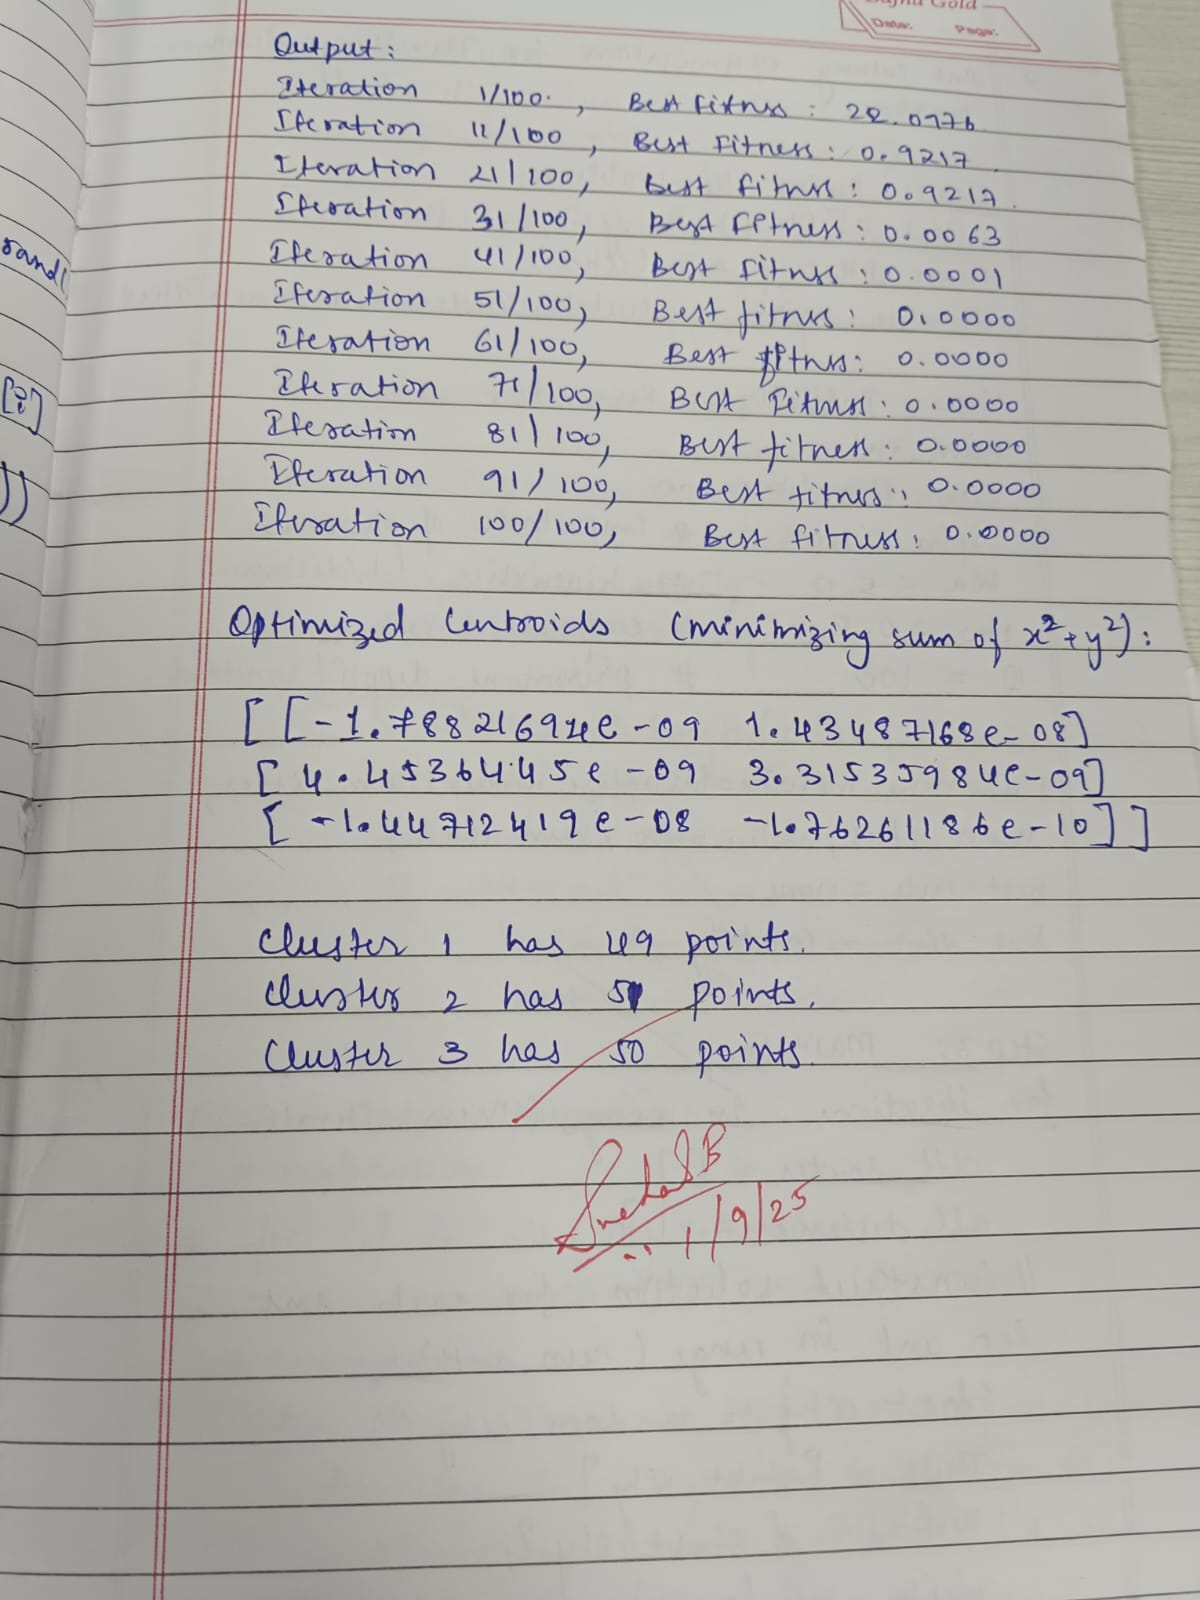 Gold
Date: Page:
Output:
Iteration 1/100., Best Fitness: 22.0976
Iteration 11/100, Best Fitness: 0.9217.
Iteration 21/100, Best Fitness: 0.9217.
Iteration 31/100, Best Fitness: 0.0063
Iteration 41/100, Best Fitness: 0.0001
Iteration 51/100, Best fitness: 0.0000
Iteration 61/100, Best fitness: 0.0000
Iteration 71/100, Best Fitness: 0.0000
Iteration 81/100, Best fitness: 0.0000
Iteration 91/100, Best fitness: 0.0000
Iteration 100/100, Best fitness: 0.0000
rand(
[i]
))
Optimized Centroids (minimizing sum of x²+y²):
[[-1.78821694e-09 1.43487168e-08]
[4.45364445e-09 3.31535984e-09]
[-1.44712419e-08 -1.76261186e-10]]
Cluster 1 has 49 points.
Cluster 2 has 51 points.
Cluster 3 has 50 points.
SnehalSB
1/9/25